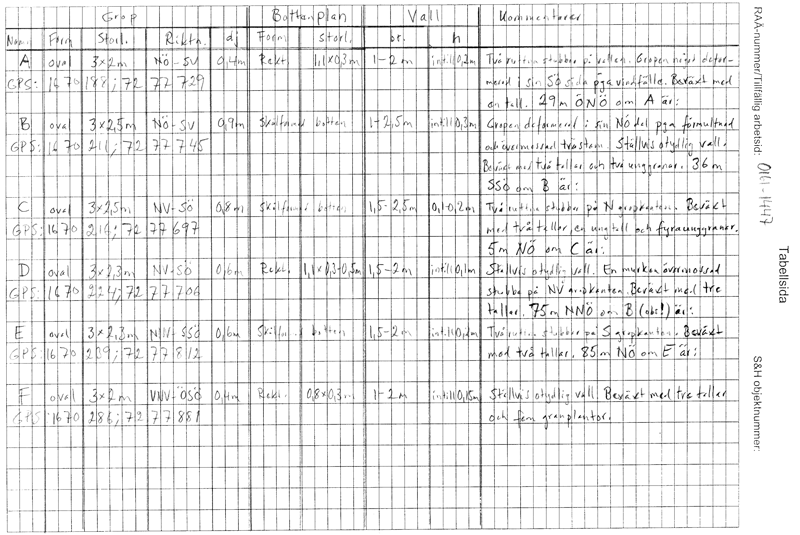 Grop Bottenplan Vall Kommentarer
Num. Form Storl. Riktn. dj Form storl. br. h
A oval 3×2m NÖ-SV 0,4m Rekt. 1,1×0,3m 1-2m intill 0,2m Två ruttna stubbar på vallen. Gropen något defor-
GPS: 1670 188; 72 77 729 merad i sin SÖ sida pga vindfälle. Beväxt med
en tall. 29m ÖNÖ om A är:
B oval 3×2,5m NÖ-SV 0,9m Skålformad botten 1-2,5m intill 0,3m Gropen deformerad i sin NÖ del pga förmultnad
GPS: 1670 211; 72 77 745 och övermossad trästam. Ställvis otydlig vall.
Beväxt med två tallar och två unggranar. 36m
SSÖ om B är:
C oval 3×2,5m NV-SÖ 0,8m Skålformad botten 1,5-2,5m 0,1-0,2m Två ruttna stubbar på N gropkanten. Beväxt
GPS: 1670 216; 72 77 697 med två tallar, en ungtall och fyra unggranar.
5m NÖ om C är:
D oval 3×2,3m NV-SÖ 0,6m Rekt. 1,1×0,3-0,5m 1,5-2m intill 0,1m Ställvis otydlig vall. En murken övermossad
GPS: 1670 224; 72 77 706 stubbe på NV gropkanten. Beväxt med tre
tallar. 75m NNÖ om B (obs!) är:
E oval 3×2,3m NNV-SSÖ 0,6m Skålformad botten 1,5-2m intill 0,2m Två ruttna stubbar på S gropkanten. Beväxt
GPS: 1670 239; 72 77 812 med två tallar. 85m NÖ om E är:
F oval 3×2m VNV-ÖSÖ 0,4m Rekt. 0,8×0,3m 1-2m intill 0,15m Ställvis otydlig vall. Beväxt med tre tallar
GPS: 1670 286; 72 77 881 och fem granplantor.
RAÄ-nummer/Tillfällig arbetsid: 0161-1447
Tabellsida
S&H objektnummer: